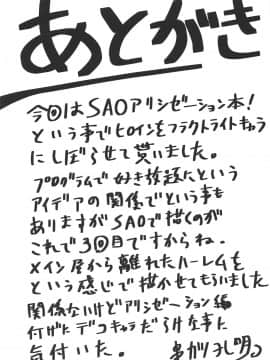 あとがき
今回はSAOアリシゼーション本!
という事でヒロインをフラクトライトキャラ
にしぼらせて貰いました。
プログラムで好き放題にという
アイデアの関係でという事も
ありますがSAOで描くのが
これで3回目ですからね。
メイン届から離れたハーレムを
という感じで描かせてもらいました
関係ないけどアリシゼーション編
付けたデコキャラだらけな事に
気付いた。